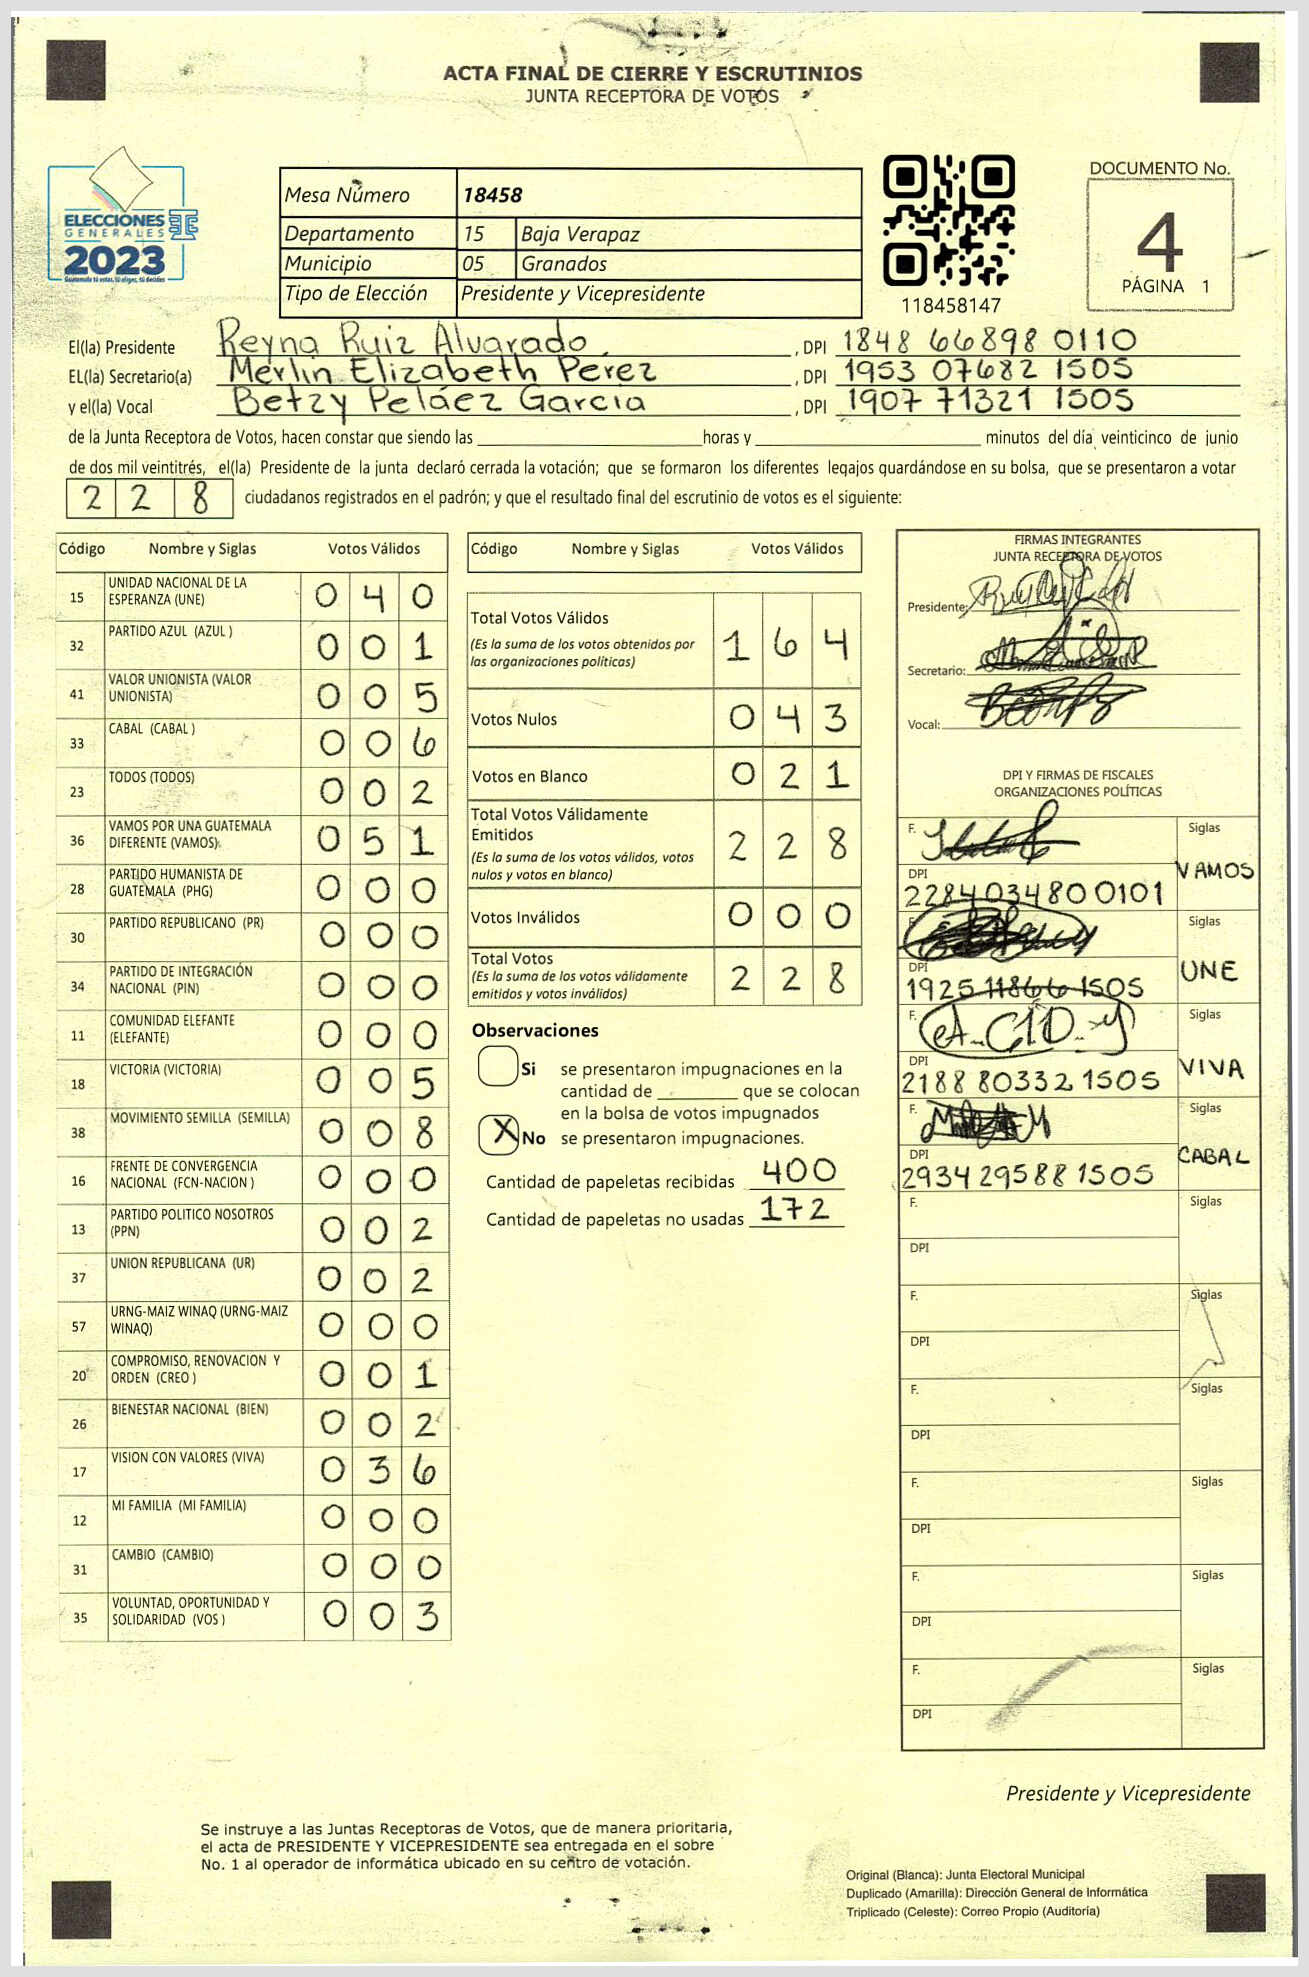 ACTA FINAL DE CIERRE Y ESCRUTINIOS
JUNTA RECEPTORA DE VOTOS
ELECCIONES
GENERALES
2023
Guatemala tú votas, tú eliges, tú decides
Mesa Número 18458
Departamento 15 Baja Verapaz
Municipio 05 Granados
Tipo de Elección Presidente y Vicepresidente
118458147
DOCUMENTO No.
4
PÁGINA 1
El(la) Presidente Reyna Ruiz Alvarado, DPI 1848 66898 0110
EL(la) Secretario(a) Merlin Elizabeth Perez, DPI 1953 07682 1505
y el(la) Vocal Betzy Peláez García, DPI 1907 71321 1505
de la Junta Receptora de Votos, hacen constar que siendo las ____ horas y ____ minutos del día veinticinco de junio
de dos mil veintitrés, el(la) Presidente de la junta declaró cerrada la votación; que se formaron los diferentes legajos guardándose en su bolsa, que se presentaron a votar
228 ciudadanos registrados en el padrón; y que el resultado final del escrutinio de votos es el siguiente:
Código Nombre y Siglas Votos Válidos
15 UNIDAD NACIONAL DE LA ESPERANZA (UNE) 040
32 PARTIDO AZUL (AZUL ) 001
41 VALOR UNIONISTA (VALOR UNIONISTA) 005
33 CABAL (CABAL ) 006
23 TODOS (TODOS) 002
36 VAMOS POR UNA GUATEMALA DIFERENTE (VAMOS) 051
28 PARTIDO HUMANISTA DE GUATEMALA (PHG) 000
30 PARTIDO REPUBLICANO (PR) 000
34 PARTIDO DE INTEGRACIÓN NACIONAL (PIN) 000
11 COMUNIDAD ELEFANTE (ELEFANTE) 000
18 VICTORIA (VICTORIA) 005
38 MOVIMIENTO SEMILLA (SEMILLA) 008
16 FRENTE DE CONVERGENCIA NACIONAL (FCN-NACION ) 000
13 PARTIDO POLITICO NOSOTROS (PPN) 002
37 UNION REPUBLICANA (UR) 002
57 URNG-MAIZ WINAQ (URNG-MAIZ WINAQ) 000
20 COMPROMISO, RENOVACION Y ORDEN (CREO ) 001
26 BIENESTAR NACIONAL (BIEN) 002
17 VISION CON VALORES (VIVA) 036
12 MI FAMILIA (MI FAMILIA) 000
31 CAMBIO (CAMBIO) 000
35 VOLUNTAD, OPORTUNIDAD Y SOLIDARIDAD (VOS ) 003
Código Nombre y Siglas Votos Válidos
Total Votos Válidos 164
(Es la suma de los votos obtenidos por
las organizaciones políticas)
Votos Nulos 043
Votos en Blanco 021
Total Votos Válidamente
Emitidos 228
(Es la suma de los votos válidos, votos
nulos y votos en blanco)
Votos Inválidos 000
Total Votos 228
(Es la suma de los votos válidamente
emitidos y votos inválidos)
Observaciones
Si se presentaron impugnaciones en la
cantidad de ____ que se colocan
en la bolsa de votos impugnados
X No se presentaron impugnaciones.
Cantidad de papeletas recibidas 400
Cantidad de papeletas no usadas 172
FIRMAS INTEGRANTES
JUNTA RECEPTORA DE VOTOS
Presidente:
Secretario:
Vocal:
DPI Y FIRMAS DE FISCALES
ORGANIZACIONES POLÍTICAS
F. Siglas
VAMOS
DPI
2284034800101
F. Siglas
UNE
DPI
1925 11866 1505
F. Siglas
VIVA
DPI
2188 80332 1505
F. Siglas
CABAL
DPI
2934 29588 1505
F. Siglas
DPI
F. Siglas
DPI
F. Siglas
DPI
F. Siglas
DPI
F. Siglas
DPI
F. Siglas
DPI
Presidente y Vicepresidente
Se instruye a las Juntas Receptoras de Votos, que de manera prioritaria,
el acta de PRESIDENTE Y VICEPRESIDENTE sea entregada en el sobre
No. 1 al operador de informática ubicado en su centro de votación.
Original (Blanca): Junta Electoral Municipal
Duplicado (Amarilla): Dirección General de Informática
Triplicado (Celeste): Correo Propio (Auditoría)